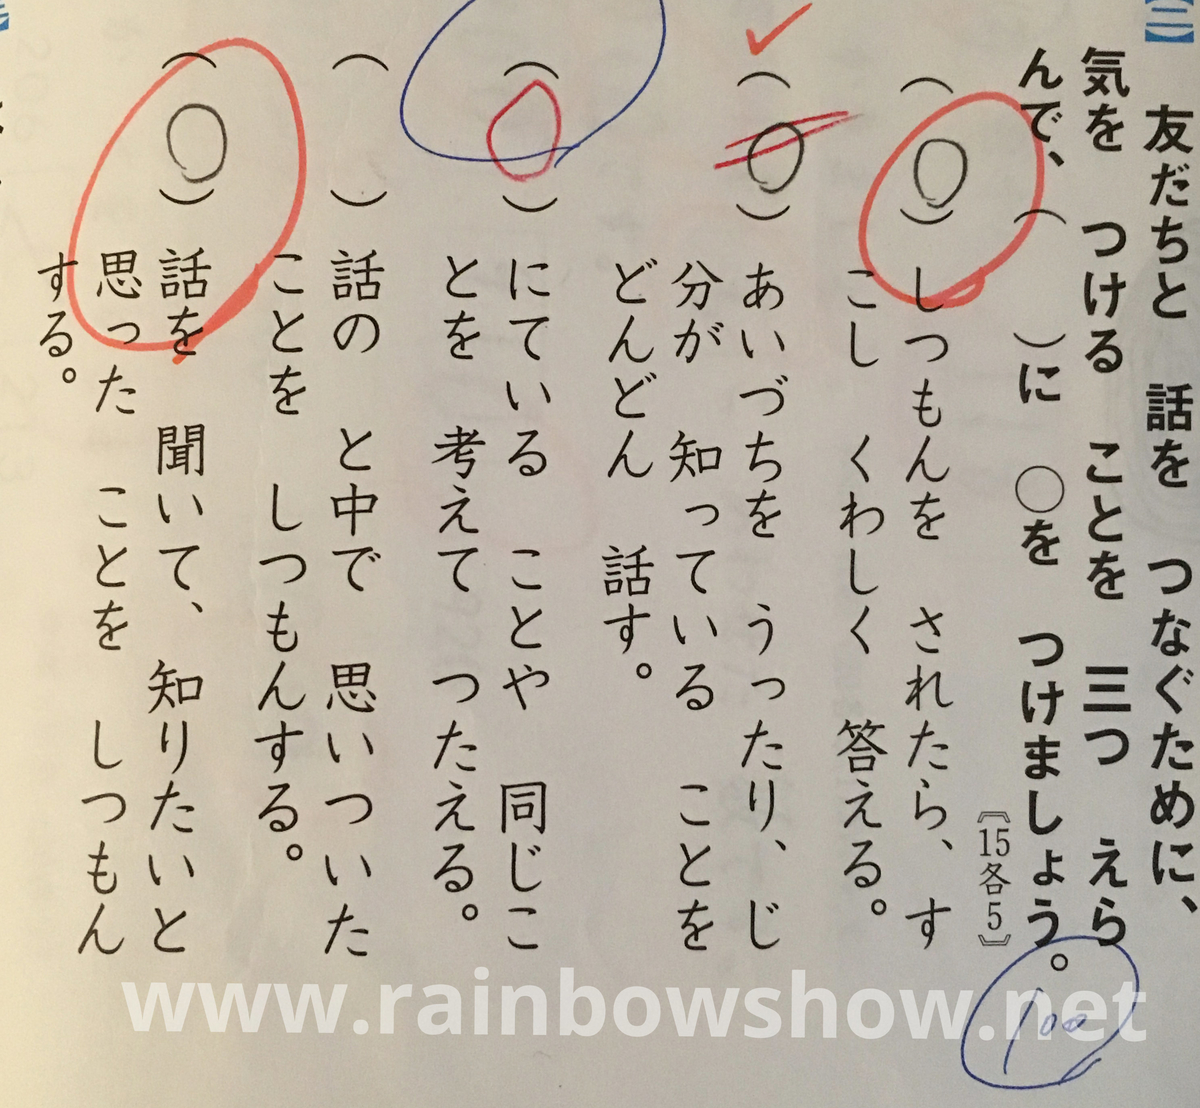 【二】 友だちと 話を つなぐために、
気を つける ことを 三つ えら
んで、( )に ○を つけましょう。
《15各5》
(○) しつもんを されたら、す
こし くわしく 答える。
(○) あいづちを うったり、じ
分が 知っている ことを
どんどん 話す。
(○) にている ことや 同じこ
とを 考えて つたえる。
( ) 話の と中で 思いついた
ことを しつもんする。
(○) 話を 聞いて、知りたいと
思った ことを しつもん
する。
100
www.rainbowshow.net